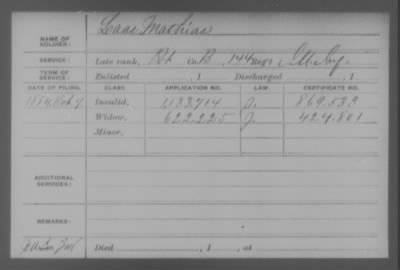 NAME OF SOLDIER: Laas Mathias
SERVICE: Late rank, Co. B, 144 Reg't
TERM OF SERVICE: Enlisted , 1 Discharged , 1
DATE OF FILING. CLASS APPLICATION NO. LAW. CERTIFICATE NO.
Invalid, 1,133,714 869.533
Widow, 622.225 424.801
Minor,
ADDITIONAL SERVICES:
REMARKS:
Died , 1 , at